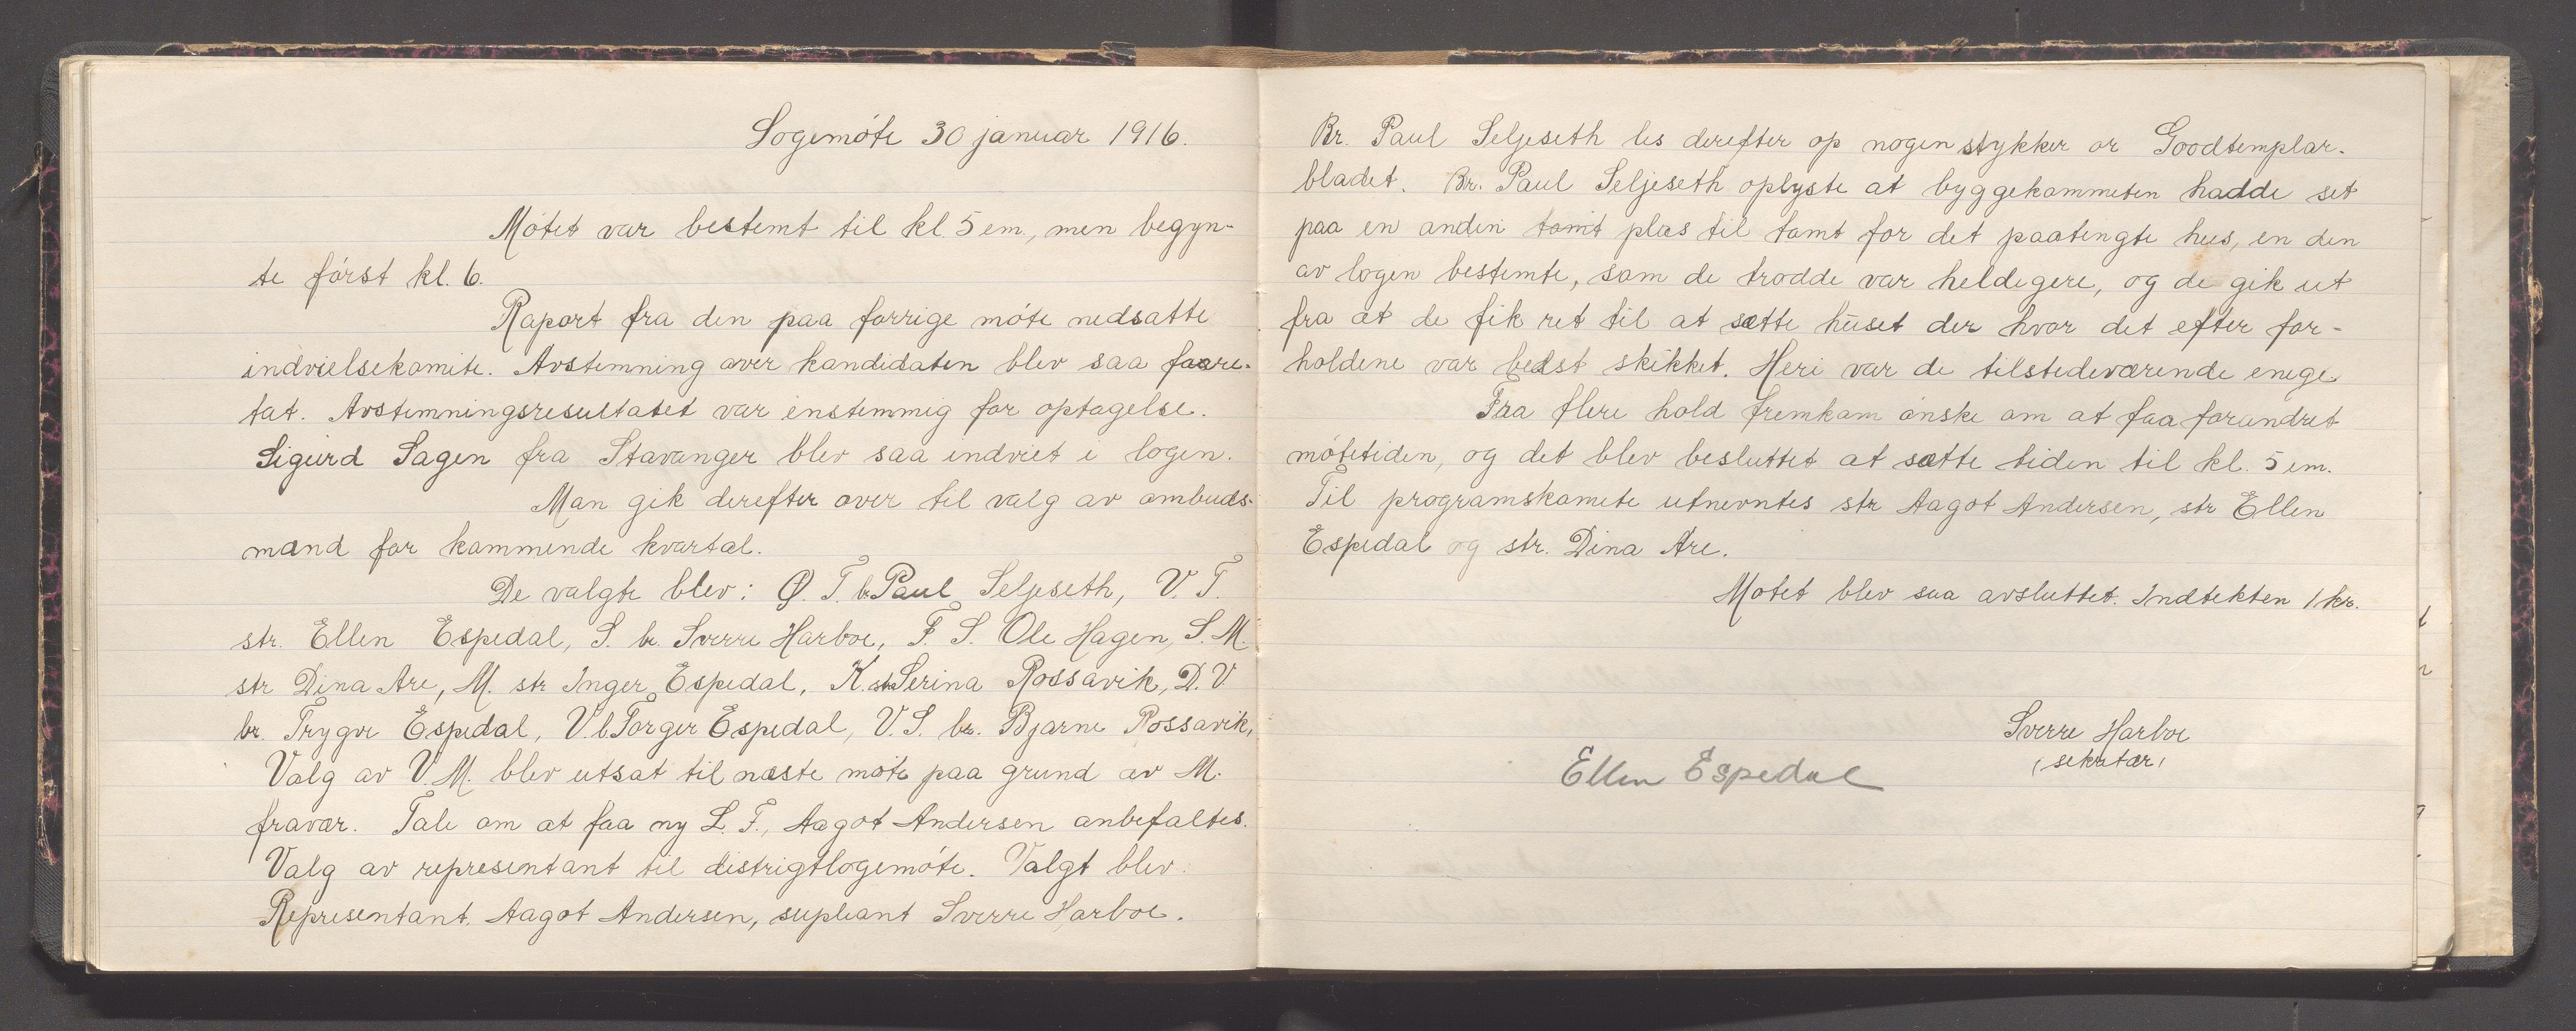 Logemøte 30 januar 1916.
Møtet var bestemt til kl. 5 em., men begyn-
te først kl. 6.
Raport fra den paa forrige møte nedsatte
indvielsekomite. Avstemning over kandidaten blev saa foore-
tat. Avstemningsresultatet var enstemmig for optagelse.
Sigurd Sagen fra Stavanger blev saa indviet i logen.
Man gik derefter over til valg av ombuds-
mænd for kommende kvartal.
De valgte blev: Ø. T. br Paul Seljeseth, V. T.
str. Ellen Espedal, S. br. Sverre Harboe, F. S. Ole Hagen, S. M.
str Dina Are, M. str Inger Espedal, K. str Serina Rossavik, D. V.
br. Trygve Espedal, V. b. Torger Espedal, V. S. br. Bjarne Rossavik,
Valg av V. M. blev utsat til næste møte paa grund av M.
fravær. Tale om at faa ny L. T., Aagot Andersen anbefaltes.
Valg av representant til distrigtlogemøte. Valgt blev
Representant. Aagot Andersen, supleant Sverre Harboe.
Br. Paul Seljeseth les derefter op nogen stykker or Goodtemplar-
bladet. Br. Paul Seljeseth oplyste at byggekommeten hadde set
paa en anden tomt plas til tomt for det paatingte hus, en den
av logen bestemte, som de trodde var heldigere, og de gik ut
fra at de fik ret til at sætte huset der hvor det efter for-
holdene var bedst skikket. Heri var de tilstedeværende enige
Fra flere hold fremkom ønske om at faa forandret
møtetiden, og det blev besluttet at sætte tiden til kl. 5 em.
Til programskomite utnevntes str Aagot Andersen, str Ellen
Espedal og str. Dina Are.
Møtet blev saa avsluttet. Indtekten 1 kr.
Sverre Harboe
, sekretær,
Ellen Espedal